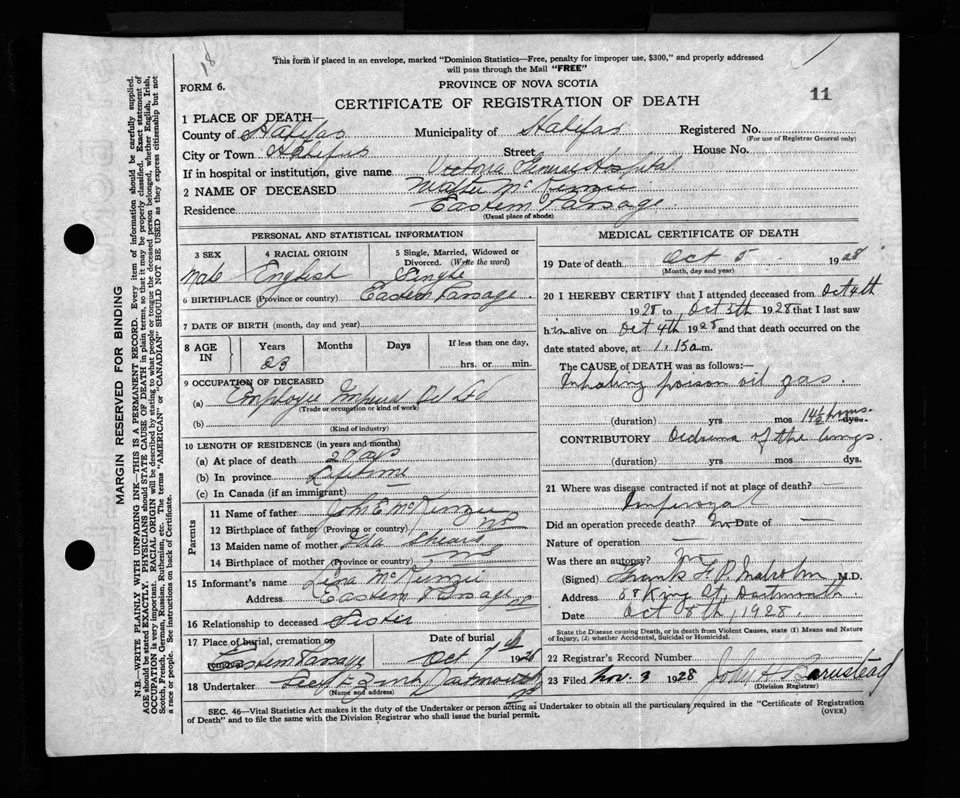 This form if placed in an envelope, marked "Dominion Statistics—Free, penalty for improper use, $300," and properly addressed
will pass through the Mail "FREE"
FORM 6.
PROVINCE OF NOVA SCOTIA
CERTIFICATE OF REGISTRATION OF DEATH
11
1 PLACE OF DEATH—
County of Halifax Municipality of Halifax Registered No.
(For use of Registrar General only)
City or Town Halifax Street House No.
If in hospital or institution, give name Victoria General Hospital
2 NAME OF DECEASED Walter McKenzie
Residence Eastern Passage
(Usual place of abode)
PERSONAL AND STATISTICAL INFORMATION
3 SEX 4 RACIAL ORIGIN 5 Single, Married, Widowed or
Divorced. (Write the word)
Male English Single
6 BIRTHPLACE (Province or country) Eastern Passage
7 DATE OF BIRTH (month, day and year)
8 AGE IN Years Months Days If less than one day,
23 hrs. or min.
9 OCCUPATION OF DECEASED
(a) Employee Imperial Oil Ltd
(Trade or occupation or kind of work)
(b)
(Kind of industry)
10 LENGTH OF RESIDENCE (in years and months)
(a) At place of death 2 days
(b) In province Lifetime
(c) In Canada (if an immigrant)
Parents
11 Name of father John E. McKenzie
12 Birthplace of father (Province or country) NS
13 Maiden name of mother Ida
14 Birthplace of mother (Province or country) NS
15 Informant's name Lena McKenzie
Address Eastern Passage NS
16 Relationship to deceased Sister
17 Place of burial, cremation or removal Date of burial
Eastern Passage Oct 7th 1928
18 Undertaker Zink Dartmouth NS
(Name and address)
MEDICAL CERTIFICATE OF DEATH
19 Date of death Oct 5 1928
(Month, day and year)
20 I HEREBY CERTIFY that I attended deceased from Oct 4th
1928 to Oct 5th 1928 that I last saw
him alive on Oct 4th 1928 and that death occurred on
date stated above, at 1.15 a.m.
The CAUSE OF DEATH was as follows:—
Inhaling poison oil gas.
(duration) yrs mos 14½ hours. dys.
CONTRIBUTORY Oedema of the lungs.
(duration) yrs mos dys.
21 Where was disease contracted if not at place of death?—
Imperoyal
Did an operation precede death? No Date of —
Nature of operation —
Was there an autopsy? No
(Signed) Frank F. P. Malcolm, M.D.
Address 58 King St, Dartmouth.
Date Oct 8th, 1928.
State the Disease causing Death, or in death from Violent Causes, state (1) Means and Nature
of Injury, (2) whether Accidental, Suicidal or Homicidal.
22 Registrar's Record Number
23 Filed Nov. 3 1928 John H Barnstead
(Division Registrar)
SEC. 46—Vital Statistics Act makes it the duty of the Undertaker or person acting as Undertaker to obtain all the particulars required in the "Certificate of Registration
of Death" and to file the same with the Division Registrar who shall issue the burial permit.
(OVER)
MARGIN RESERVED FOR BINDING
N.B.—WRITE PLAINLY WITH UNFADING INK—THIS IS A PERMANENT RECORD. Every item of information should be carefully supplied.
AGE should be stated EXACTLY. PHYSICIANS should STATE CAUSE OF DEATH in plain terms, so that it may be properly classified. Exact statement of
OCCUPATION is very important. RACIAL ORIGIN will be described by stating to what people or tongue the deceased person belonged, whether English, Irish,
Scotch, French, German, Russian, Ruthenian, etc. The terms "AMERICAN" or "CANADIAN" SHOULD NOT BE USED as they express citizenship but not
a race or people. See instructions on back of Certificate.